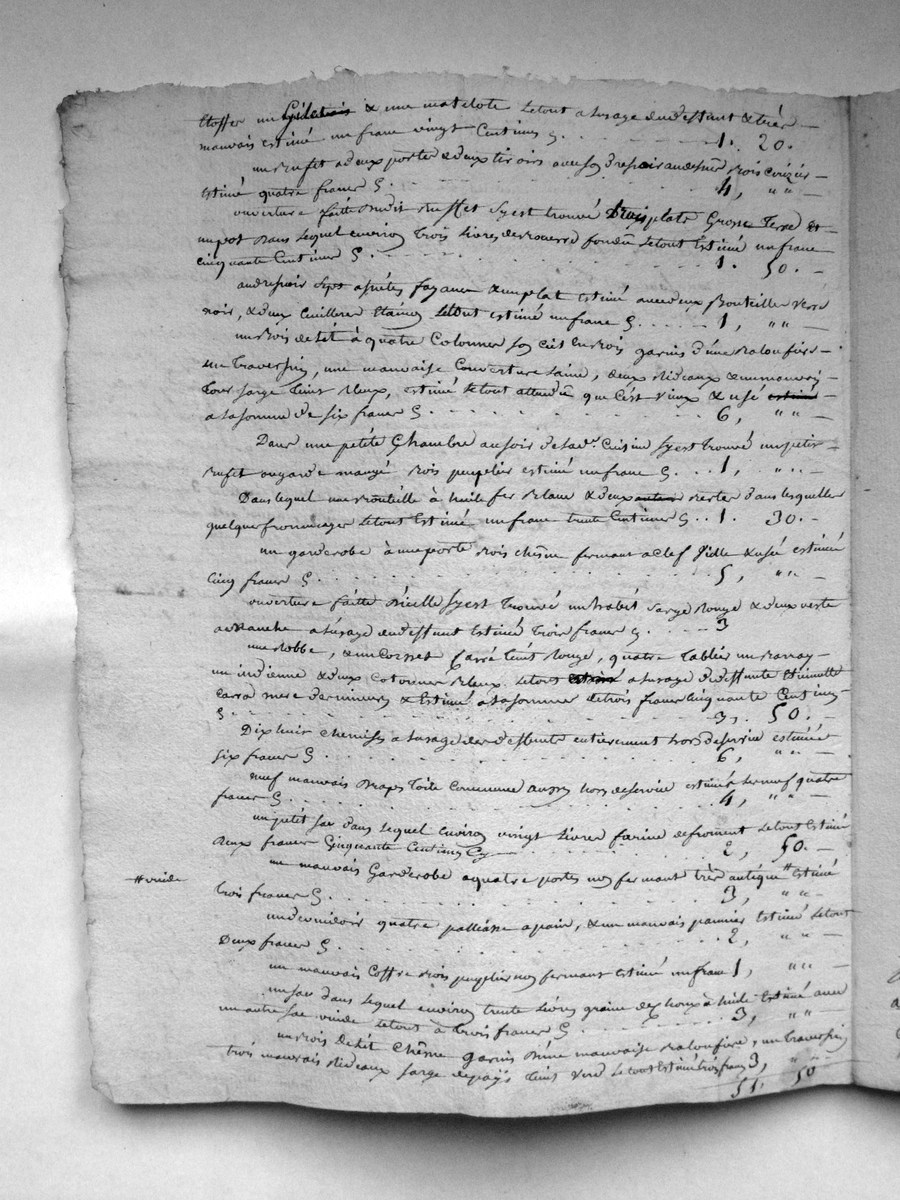 Etoffer un Giletais & une matelote letout a lusage dud' deffunt & très —
mauvais estimé un franc vingt Centimes ç. . . . . 1. 20.
un Bufet adeux portes & deux tiroirs avec son dressoir audessus Bois cerizier —
Estimé quatre francs ç . . . . 4, " " —
ouverture faitte Dudit Buffet syest trouvé Trois plats Grosse Terre et
un pot Dans lequel environ Trois Livres de Beurre fondu Letout Estimé un franc
cinquante Centimes ç . . . . 1. 50. —
audressoir sept assiétes fayance & un plat estimé avec deux Bouteilles Verre
noir, & deux Cuilleres Etaing Letout estimé un franc ç . . . . 1, " " —
un Bois de Lit à quatre Colonnes son ciel en Bois garnis d'une Baloufiere
un Traversin, une mauvaise Couverture laine, deux Rideaux & un mauvais
Tour sarge Teint Bleux, estimé Letout attendu que c'est vieux & usé estimé —
a la somme de six francs ç . . . . 6, " " —
Dans une petite Chambre au soir de lad.e Cuisine syest trouvé un petit
Bufet ougarde mangé Bois peuplier estimé un franc ç . . 1, " " —
Dans lequel une Bouteille à huile fer Blanc & deux autres Restes dans lesquelles
quelque frommages Letout Estimé un franc trente Centimes ç . . 1. 30. —
un garderobe à une porte Bois chêne fermant a clef Vielle & usée estimée
Cinq francs ç . . . . 5, " " —
ouverture faitte D'icelle syest Trouvé un habit sarge Rouge & deux veste
a Manche a lusage dud' deffunt Estimé Trois francs ç . . . . 3
une Robbe, & un Corset Carré teint Rouge, quatre Tablier
un indienne & deux Cotonnes Bleux. Letout Estimé a lusage de deffunte
mere des mineurs & Estimé a la somme de trois francs cinquante Centimes
ç . . . . 3, 50. —
Dix huit Chemises a lusage de la deffunte entièrement hors de service estimée
six francs ç . . . . 6, " " —
neuf mauvais Draps Toile Commune aussy hors de service estimés les neuf quatre
francs ç . . . . 4, " " —
un petit sac dans Lequel environ vingt Livres farine de froment Letout Estimé
Deux francs Cinquante Centimes Cy . . . . 2, 50. —
un mauvais Garderobe a quatre portes non fermant très antique # Estimé
# vuide
trois francs ç . . . . 3, " " —
un devidoir quatre palliasse a pain, & un mauvais pannier Estimé Letout
Deux francs ç . . . . 2, " " —
un mauvais Coffre Bois peuplier non fermant estimé un franc 1, " " —
un sac dans Lequel environ trente Livres graine de choux à huile Estimé avec
un autre sac vuide Letout à trois francs ç . . . . 3, " " —
un Bois de Lit Chêne garnis d'une mauvaise Baloufiere, un traversin
trois mauvais Rideaux sarge de pays Teint Verd Letout Estimé trois francs 3, " " —
51. 50